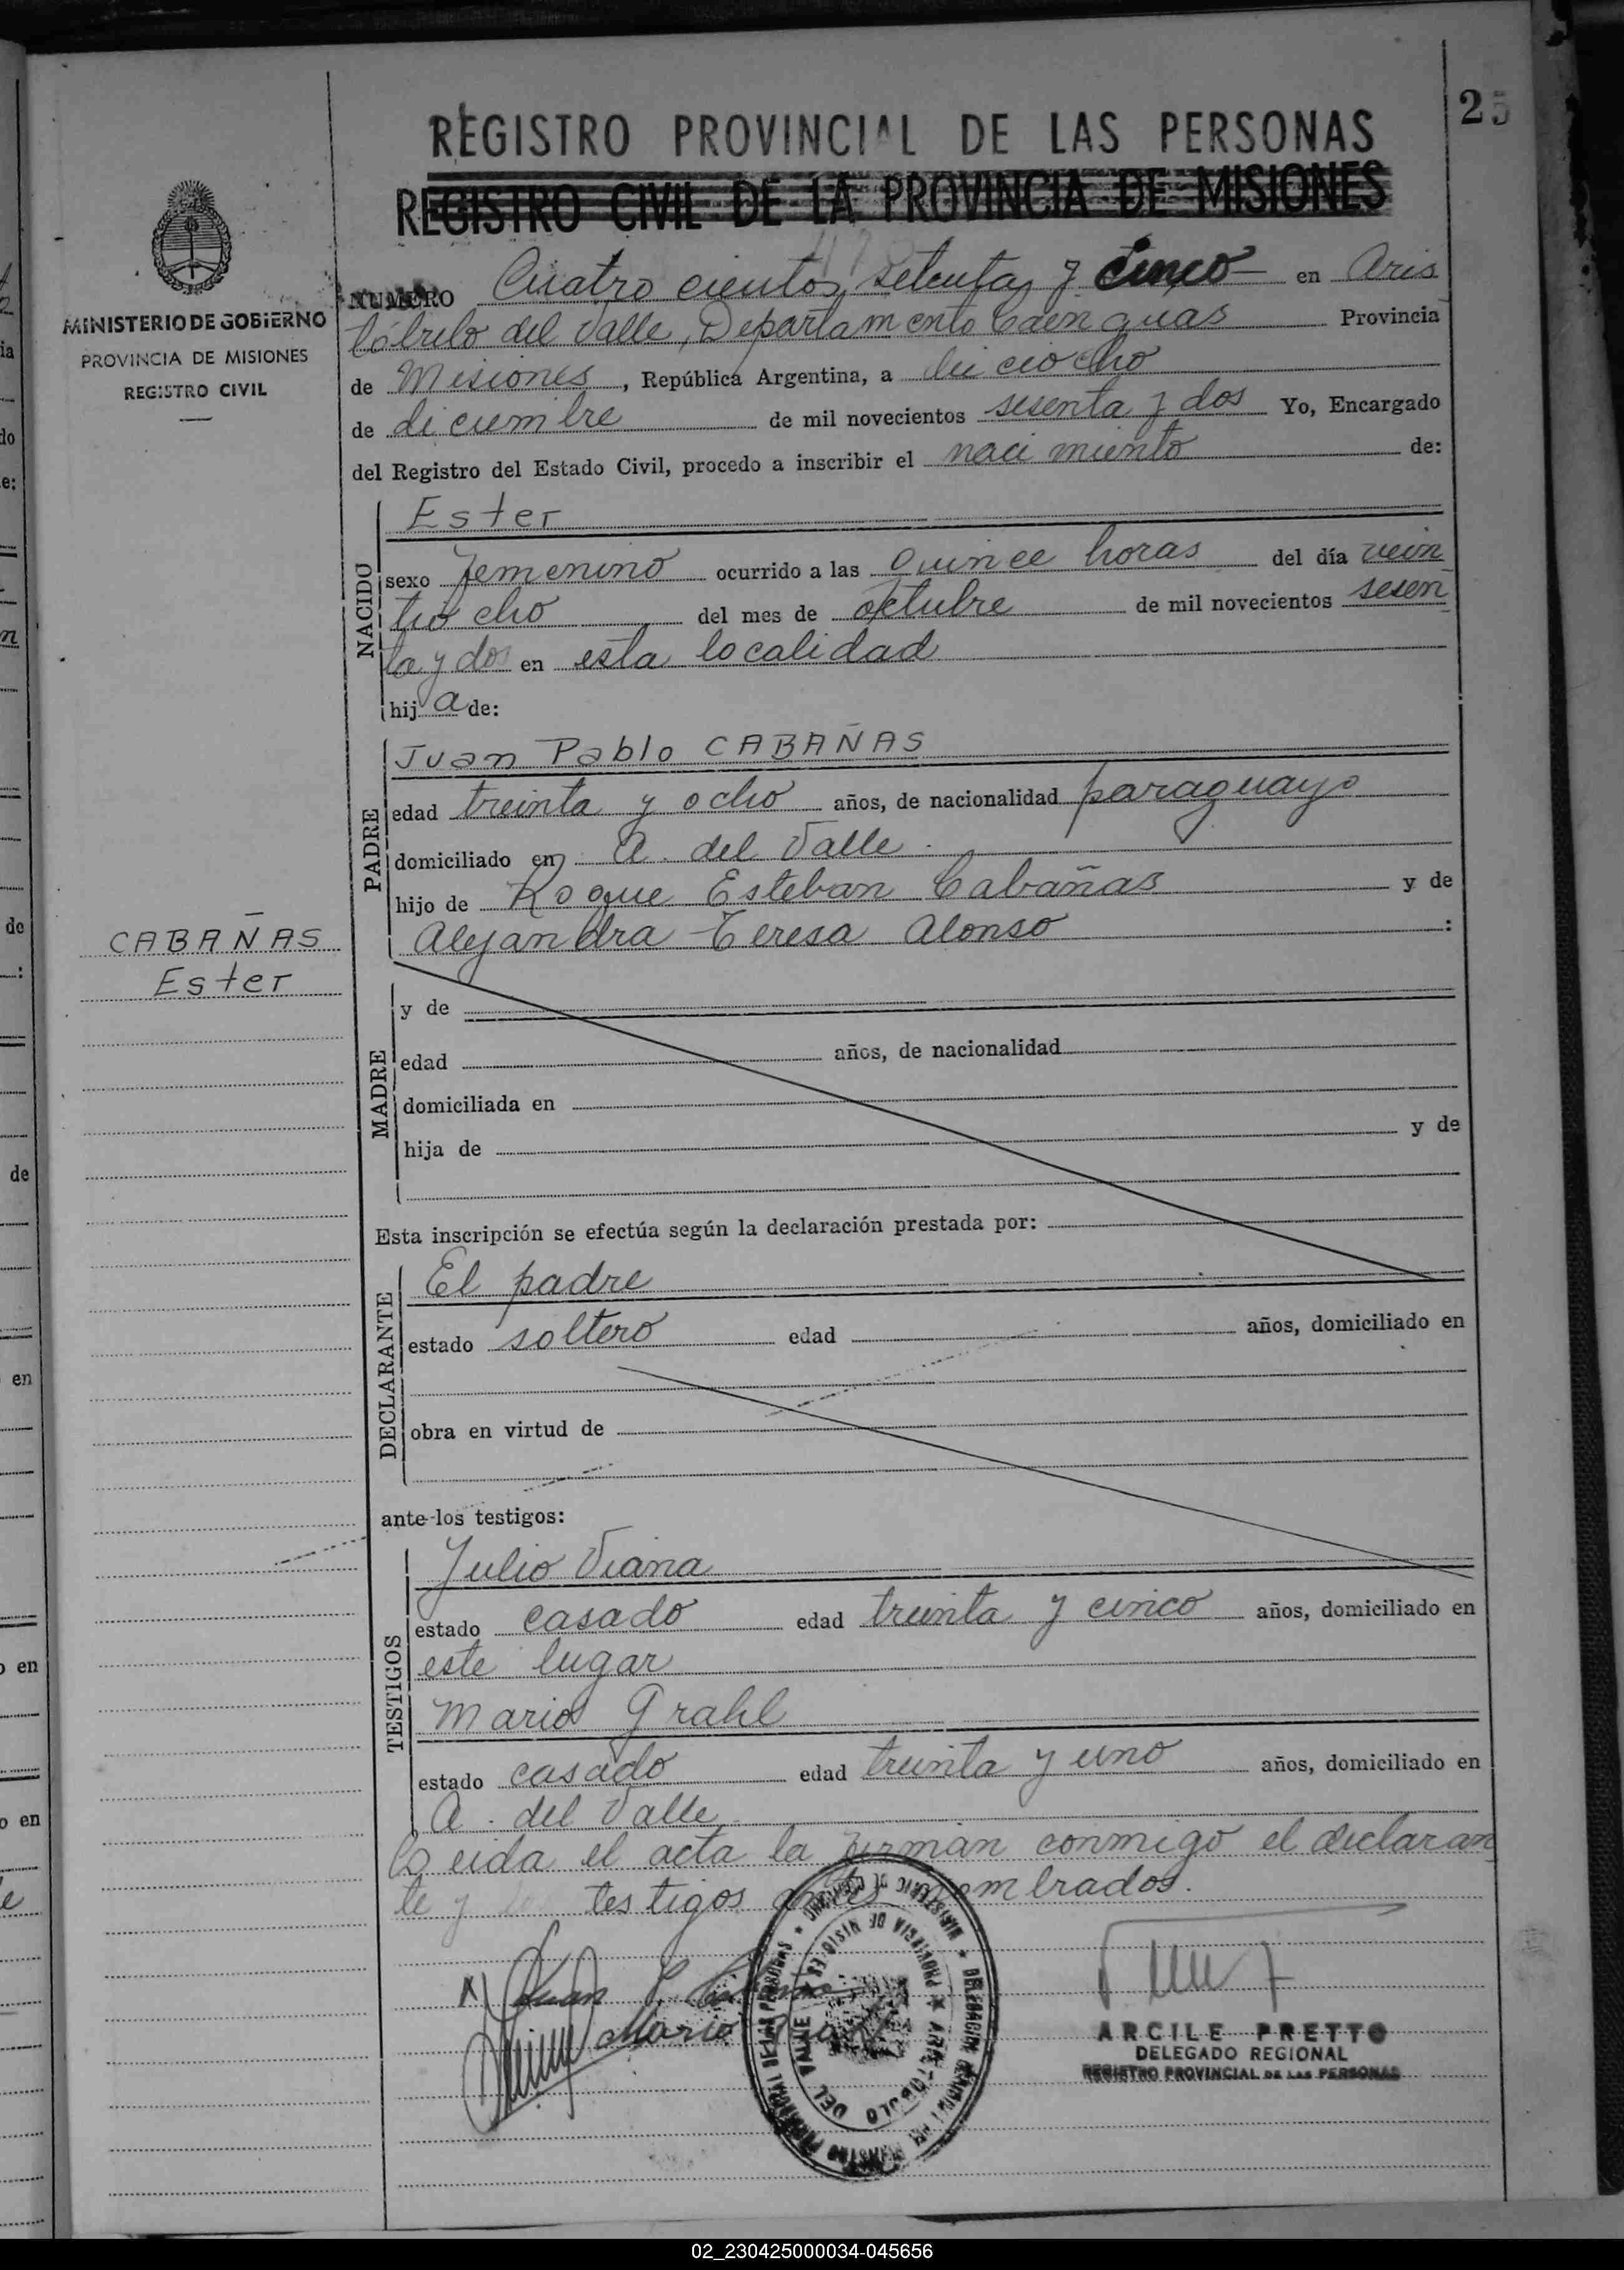 25
REGISTRO PROVINCIAL DE LAS PERSONAS
REGISTRO CIVIL DE LA PROVINCIA DE MISIONES
MINISTERIO DE GOBIERNO
PROVINCIA DE MISIONES
REGISTRO CIVIL
NUMERO Cuatro cientos setenta y cinco en Aris
tóbulo del Valle, Departamento Cainguas Provincia
de Misiones, República Argentina, a dieciocho
de diciembre de mil novecientos sesenta y dos Yo, Encargado
del Registro del Estado Civil, procedo a inscribir el nacimiento de:
NACIDO
Ester
sexo femenino ocurrido a las quince horas del día vein
tiocho del mes de octubre de mil novecientos sesen
ta y dos en esta localidad
hij a de:
PADRE
Juan Pablo CABAÑAS
edad treinta y ocho años, de nacionalidad paraguayo
domiciliado en A. del Valle.
hijo de Roque Esteban Cabañas y de
Alejandra Teresa Alonso :
CABAÑAS
Ester
MADRE
y de
edad años, de nacionalidad
domiciliada en
hija de y de
Esta inscripción se efectúa según la declaración prestada por:
DECLARANTE
El padre
estado soltero edad años, domiciliado en
obra en virtud de
ante los testigos:
TESTIGOS
Julio Viana
estado casado edad treinta y cinco años, domiciliado en
este lugar
Mario Grahl
estado casado edad treinta y uno años, domiciliado en
A. del Valle
Leida el acta la firman conmigo el declaran
te y los testigos antes nombrados.
Juan P.
Mario
ARCILE PRETTO
DELEGADO REGIONAL
REGISTRO PROVINCIAL DE LAS PERSONAS
PROVINCIA DE MISIONES
ARISTOBULO DEL VALLE
02_230425000034-045656